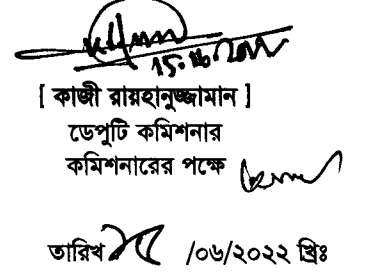 [ কাজী রায়হানুজ্জামান ]
ডেপুটি কমিশনার
কমিশনারের পক্ষে
তারিখ ১৫ /০৬/২০২২ খ্রিঃ